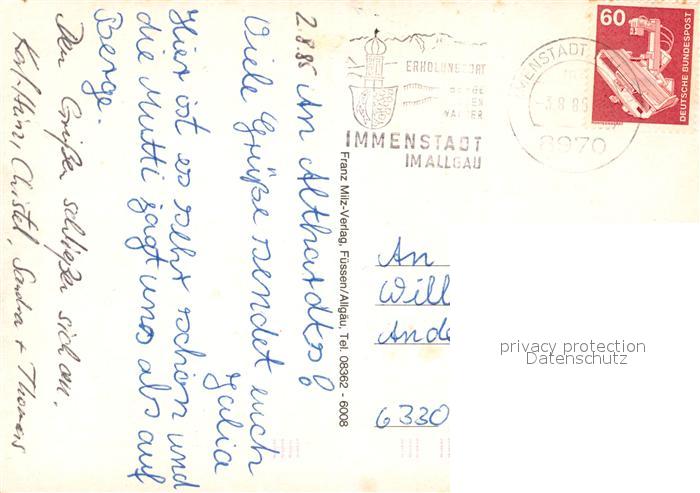 2.8.85
An Althardts!
Viele Grüße sendet euch
Julia
Hier ist es sehr schön und
die Mutti jagt uns als auf
Berge.
Den Grüßen schließen sich an.
Karl-Heinz, Christel, Sandra + Thomas
Franz Milz-Verlag, Füssen/Allgäu, Tel. 08362 - 6008
ERHOLUNGSORT
BERGE
WÄLDER
IMMENSTADT
IM ALLGÄU
MENSTADT
-3.8.85
8970
60
DEUTSCHE BUNDESPOST
An
Will
Ande
6330
privacy protection
Datenschutz